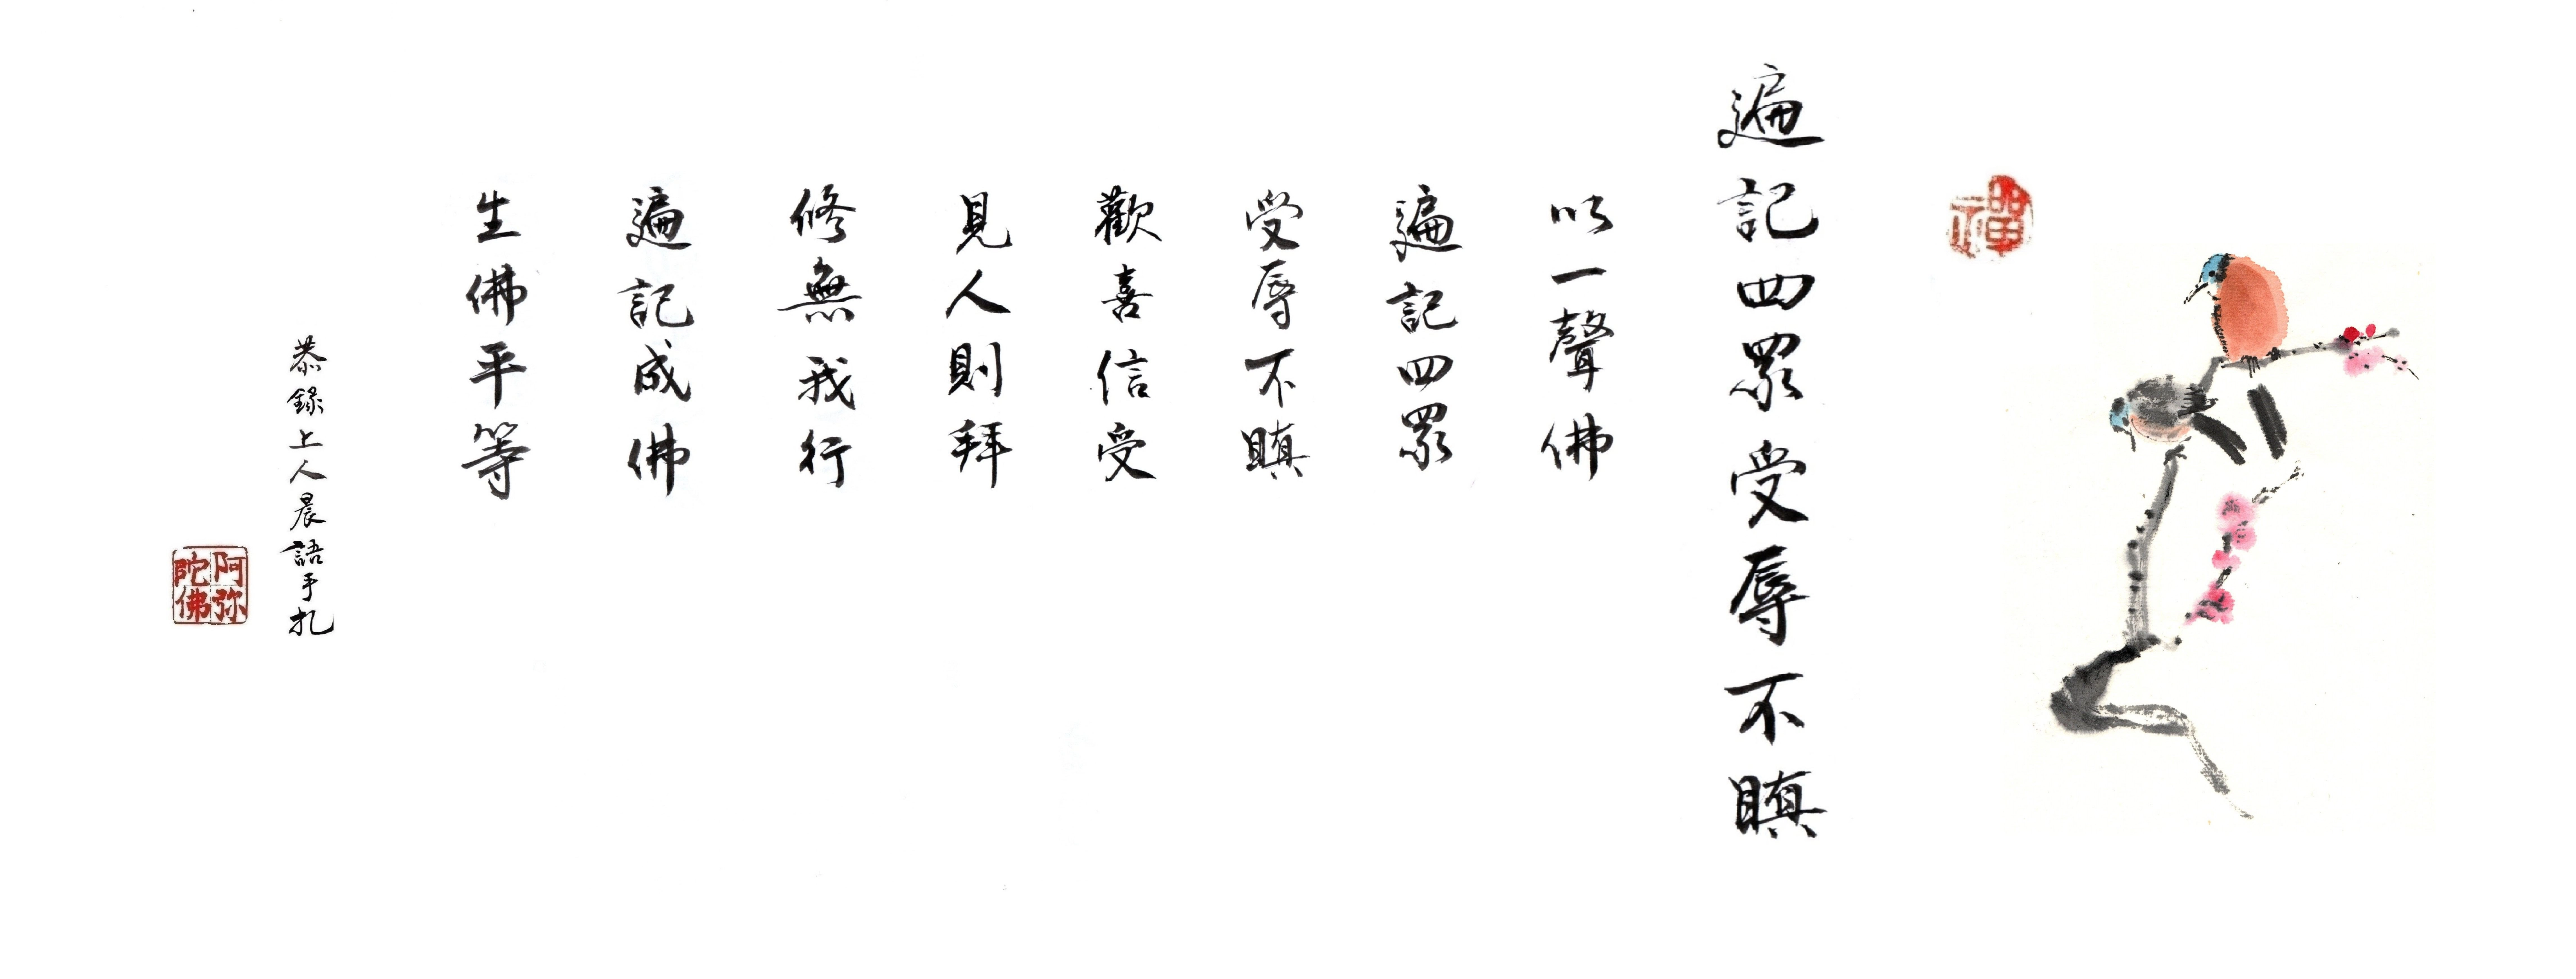 禪
遍記四眾受辱不瞋
以一聲佛
遍記四眾
受辱不瞋
歡喜信受
見人則拜
修無我行
遍記成佛
生佛平等
恭錄上人晨語手札
阿弥陀佛